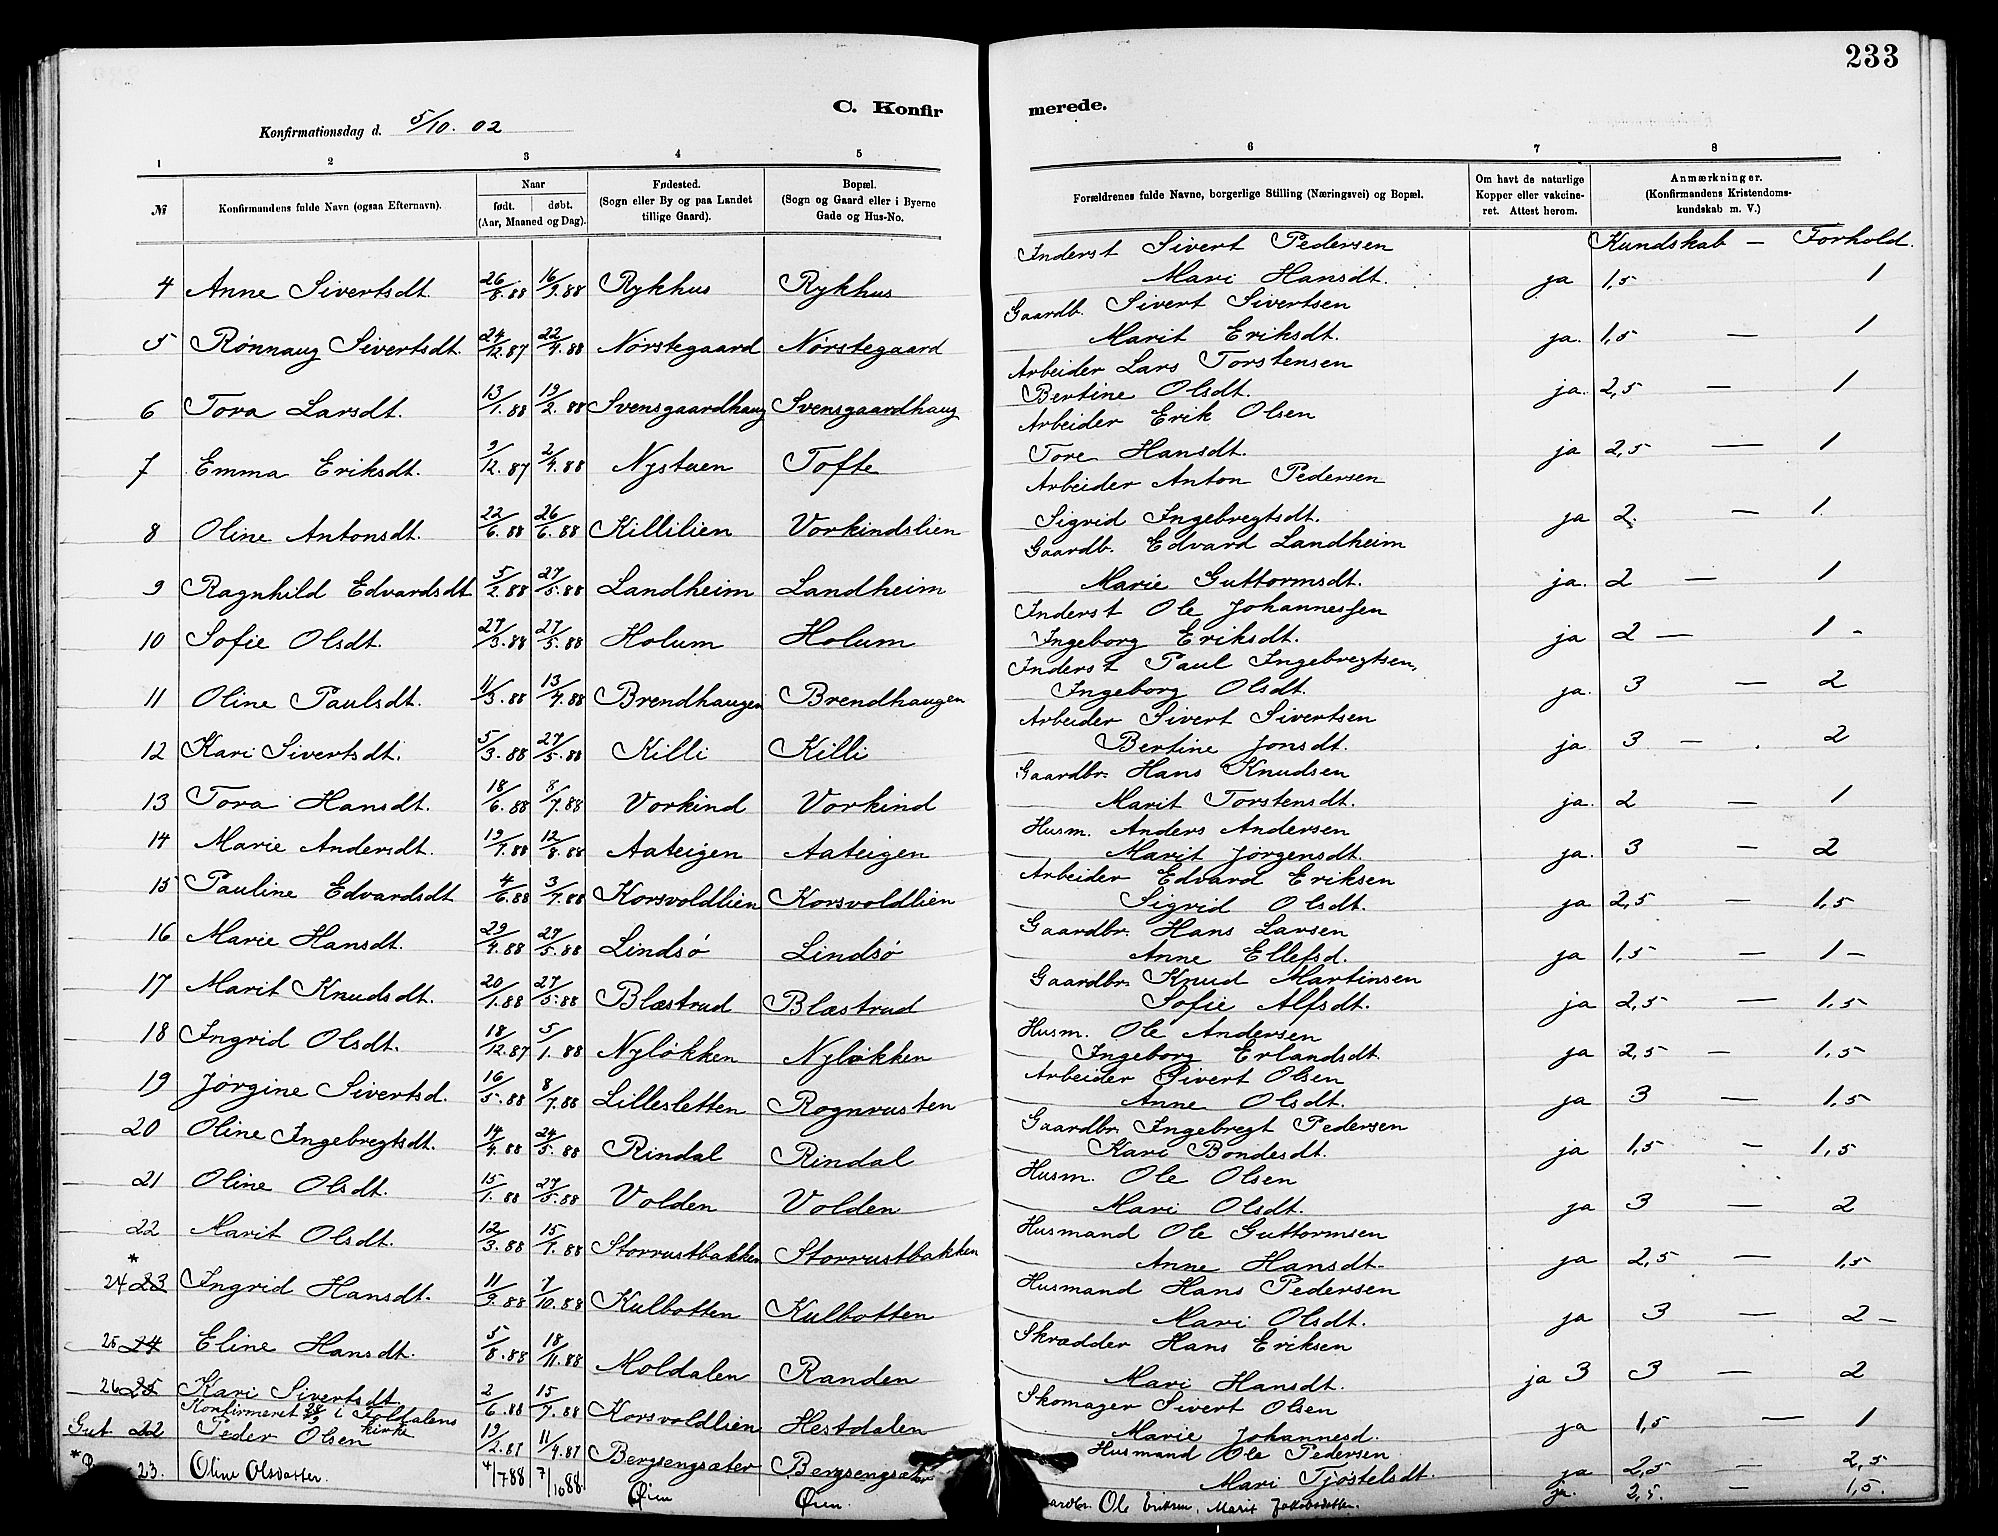 233
C. Konfir merede.
Konfirmationsdag d. 5/10. 02
1 2 3 4 5 6 7 8
№ Konfirmandens fulde Navn (ogsaa Efternavn). Naar født. døbt. (Aar, Maaned og Dag). Fødested. (Sogn eller By og paa Landet tillige Gaard). Bopæl. (Sogn og Gaard eller i Byerne Gade og Hus-No. Forældrenes fulde Navne, borgerlige Stilling (Næringsvei) og Bopæl. Om havt de naturlige Kopper eller vakcineret. Attest herom. Anmærkninger. (Konfirmandens Kristendomskundskab m. V.)
Kundskab — Forhold.
Inderst Sivert Pedersen
4 Anne Sivertsdt. 26/8.88 16/9.88 Rykhus Rykhus Mari Hansdt. ja 1,5 1
Gaardb. Sivert Sivertsen
5 Rønnaug Sivertsdt. 24/12.87 22/4.88 Nørstegaard Nørstegaard Marit Eriksdt. ja. 1,5 — 1
Arbeider Lars Torstensen
6 Tora Larsdt. 13/1.88 19/2.88 Svensgaardhaug Svensgaardhaug Bertine Olsdt. ja. 2,5 — 1
Arbeider Erik Olsen
7 Emma Eriksdt. 9/12.87 2/4.88 Nystuen Tofte Tore Hansdt. ja 2,5 — 1
Arbeider Anton Pedersen
8 Oline Antonsdt. 22/6.88 26/6.88 Killilien Vorkindslien Sigrid Ingebregtsdt. ja 2. — 1.
Gaardb. Edvard Landheim
9 Ragnhild Edvardsdt 5/2.88 27/5.88 Landheim Landheim Marie Guttormsdt. ja. 2 — 1
Inderst Ole Johannessen
10 Sofie Olsdt. 27/3.88 27/5.88 Holum Holum Ingeborg Eriksdt. ja 2 — 1 -
Inderst Paul Ingebregtsen,
11 Oline Paulsdt. 11/3.88 13/4.88 Brendhaugen Brendhaugen Ingeborg Olsdt. ja. 3 — 2
Arbeider Sivert Sivertsen
12 Kari Sivertsdt. 5/3.88 27/5.88 Killi Killi Bertine Jonsdt. ja 3 — 2
Gaardbr. Hans Knudsen
13 Tora Hansdt. 18/6.88 8/7.88 Vorkind Vorkind Marit Torstensdt. ja. 2 — 1
Husm. Anders Andersen
14 Marie Andersdt. 19/7.88 12/8.88 Aateigen Aateigen Marit Jørgensdt. ja. 3 — 2
Arbeider Edvard Eriksen
15 Pauline Edvardsdt 4/6.88 3/7.88 Korsvoldlien Korsvoldlien Sigrid Olsdt. ja 2,5 — 1,5
Gaardbr. Hans Larsen
16 Marie Hansdt. 29/4.88 27/5.88 Lindsø Lindsø Anne Ellefsd. ja 1,5 — 1 -
Gaardbr. Knud Martinsen
17 Marit Knudsdt. 20/1.88 27/5.88 Blæstrud Blæstrud Sofie Alfsdt. ja 2,5 — 1,5
Husm. Ole Andersen
18 Ingrid Olsdt. 18/12.87 5/1.88 Nyløkken Nyløkken Ingeborg Erlandsdt. ja 2,5 — 1,5
Arbeider Sivert Olsen
19 Jørgine Sivertsd. 16/5.88 8/7.88 Lillesletten Rognrusten Anne Olsdt. ja 3 — 1,5
Gaardbr. Ingebregt Pedersen
20 Oline Ingebregtsdt. 14/4.88 24/5.88 Rindal Rindal Kari Bondesdt. ja 1,5 — 1,5
Husm. Ole Olsen
21 Oline Olsdt. 15/1.88 27/5.88 Volden Volden Mari Olsdt. ja 3 — 2
Husmand Ole Guttormsen
22 Marit Olsdt. 12/3.88 15/4.88 Storrustbakken Storrustbakken Anne Hansdt. ja 2,5 — 1,5
Husmand Hans Pedersen
* 24 23 Ingrid Hansdt. 11/9.88 7/10.88 Kulbotten Kulbotten Mari Olsdt. ja 3 — 2 -
Skrædder Hans Eriksen
25 24 Eline Hansdt. 5/8.88 18/11.88 Moldalen Randen Mari Hansdt. ja 3 3 — 2
Skomager Sivert Olsen
26 25 Kari Sivertsdt 2/6.88 15/7.88 Korsvoldlien Hestdalen Marie Johannesd. ja 1,5 — 1
Konfirmeret 28/9 i Solldalens kirke
Husmand Ole Pedersen
Gut. 22 Peder Olsen 19/2.87 11/4.87 Bergsengsæter Bergsengsæter Mari Tjøstelsdt. ja 2,5 — 2,5
* 23. Oline Olsdatter. 4/7 88 7/10 88 Øien Øien. Gaardbr. Ole Eriksen, Marit Jakobsdatter. ja. 2,5. — 1,5.